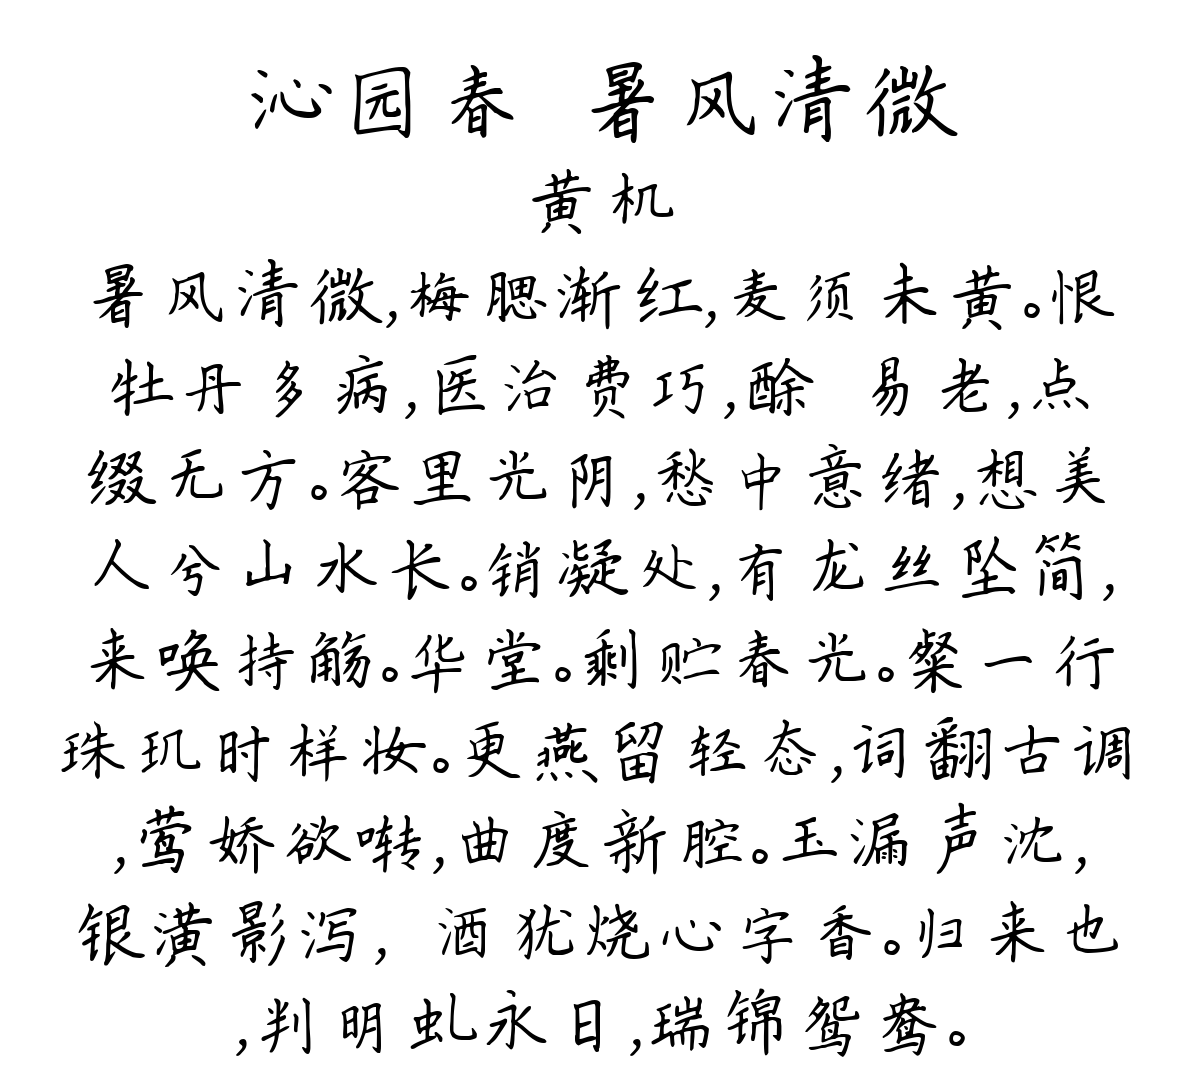 沁园春 暑风清微
黄机
暑风清微,梅腮渐红,麦须未黄。恨
牡丹多病,医治费巧,酴 易老,点
缀无方。客里光阴,愁中意绪,想美
人兮山水长。销凝处,有龙丝坠简,
来唤持觞。华堂。剩贮春光。粲一行
珠玑时样妆。更燕留轻态,词翻古调
,莺娇欲啭,曲度新腔。玉漏声沈,
银潢影泻, 酒犹烧心字香。归来也
,判明虬永日,瑞锦鸳鸯。